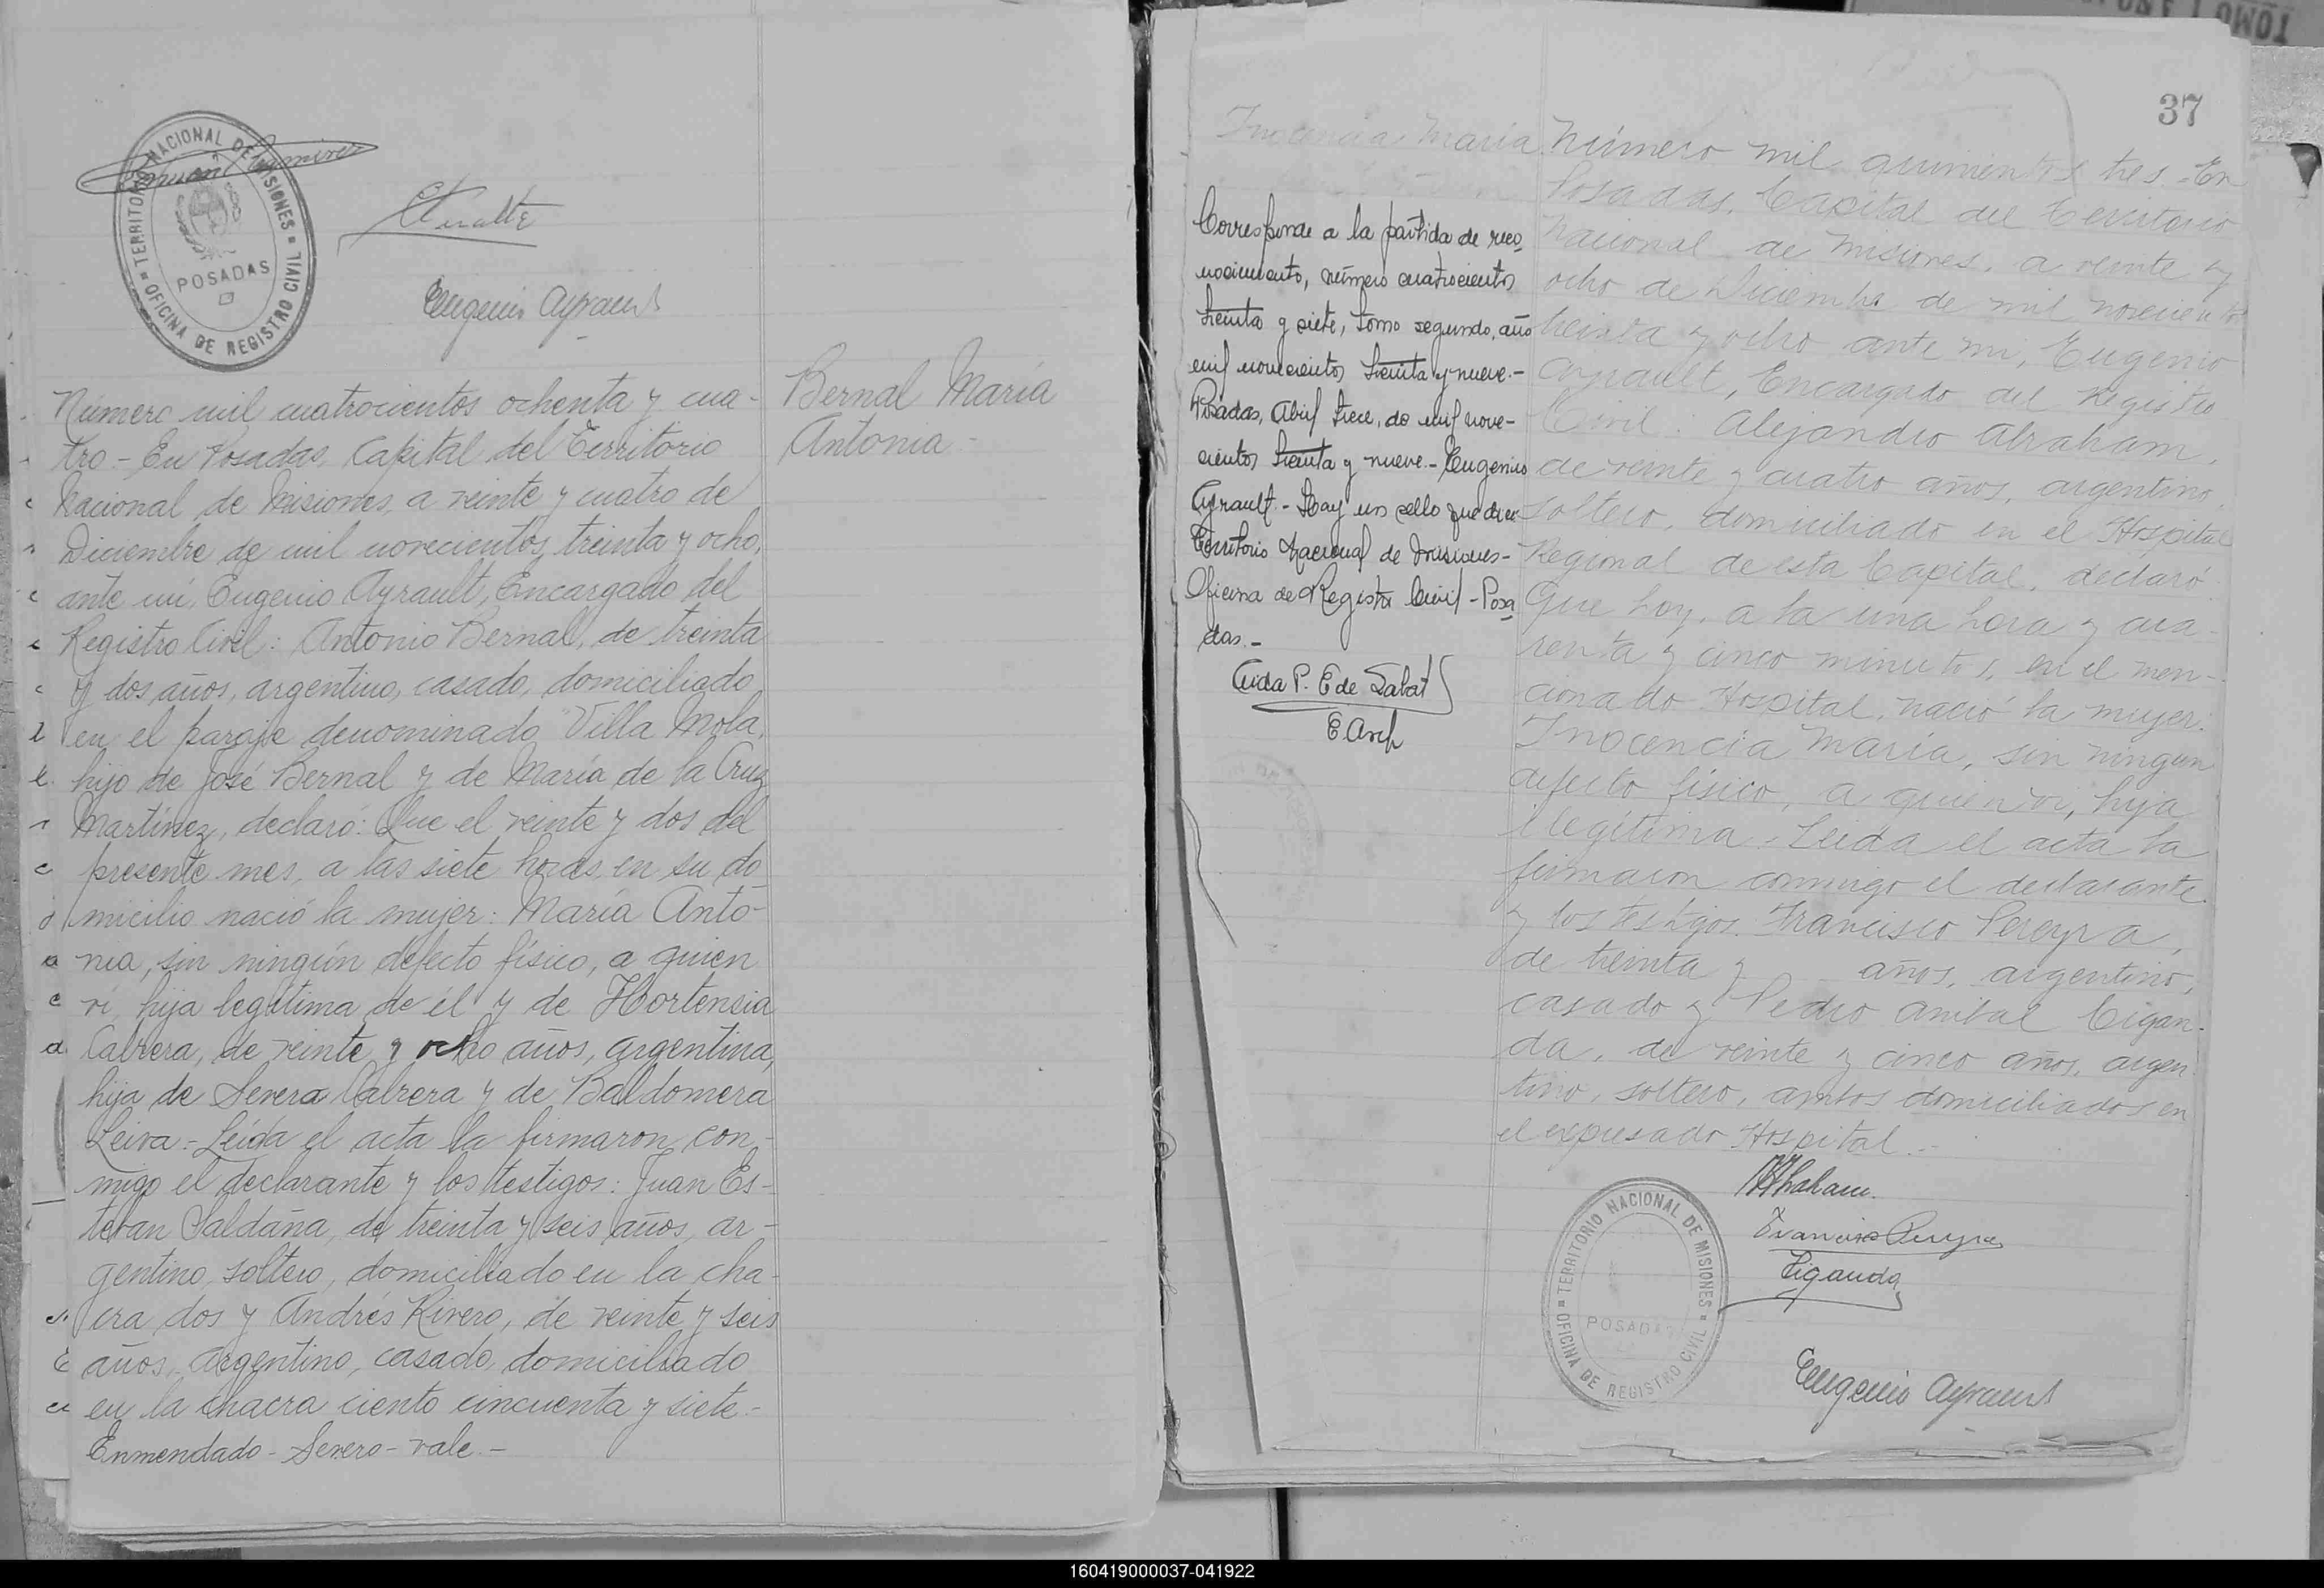 TERRITORIO NACIONAL DE MISIONES
OFICINA DE REGISTRO CIVIL
POSADAS
Eugenio Ayrault
Número mil cuatrocientos ochenta y cua-
tro.- En Posadas, Capital del Territorio
Nacional de Misiones, a veinte y cuatro de
Diciembre de mil novecientos treinta y ocho,
ante mí, Eugenio Ayrault, Encargado del
Registro Civil: Antonio Bernal, de treinta
y dos años, argentino, casado, domiciliado
en el paraje denominado Villa Mola,
hijo de José Bernal y de María de la Cruz
Martínez, declaró: Que el veinte y dos del
presente mes, a las siete horas, en su do
micilio nació la mujer: María Anto-
nia, sin ningún defecto físico, a quien
ví, hija legítima de él y de Hortensia
Cabrera, de veinte y ocho años, argentina,
hija de Severo Cabrera y de Baldomera
Leiva.- Leída el acta la firmaron con-
migo el declarante y los testigos: Juan Es-
teban Saldaña, de treinta y seis años, ar-
gentino, soltero, domiciliado en la cha-
cra dos y Andrés Rivero, de veinte y seis
años, argentino, casado, domiciliado
en la chacra ciento cincuenta y siete.-
Enmendado - Severo - vale.-
Bernal María
Antonia.-
37
Inocencia María
Corresponde a la partida de reco-
nocimiento, número cuatrocientos
treinta y siete, tomo segundo, año
mil novecientos treinta y nueve.-
Posadas, Abril trece, de mil nove-
cientos treinta y nueve.- Eugenio
Ayrault.- Hay un sello que dice
Territorio Nacional de Misiones-
Oficina de Registro Civil - Posa
das.-
P. E de Sabat
Número mil quinientos tres.- En
Posadas, Capital del Territorio
Nacional de Misiones, a veinte y
ocho de Diciembre de mil novecientos
treinta y ocho ante mí, Eugenio
Ayrault, Encargado del Registro
Civil: Alejandro Abraham,
de veinte y cuatro años, argentino,
soltero, domiciliado en el Hospital
Regional de esta Capital, declaró:
Que hoy, a la una hora y cua-
renta y cinco minutos, en el men-
cionado Hospital, nació la mujer:
Inocencia María, sin ningun
defecto físico, a quien ví, hija
ilegítima.- Leida el acta la
firmaron conmigo el declarante
y los testigos: Francisco Pereyra,
de treinta y años, argentino,
casado y Pedro Anibal Cigan-
da, de veinte y cinco años, argen
tino, soltero, ambos domiciliados en
el expresado Hospital.-
Abraham
Francisco Pereyra
Ciganda
TERRITORIO NACIONAL DE MISIONES
OFICINA DE REGISTRO CIVIL
POSADAS
Eugenio Ayrault
160419000037-041922